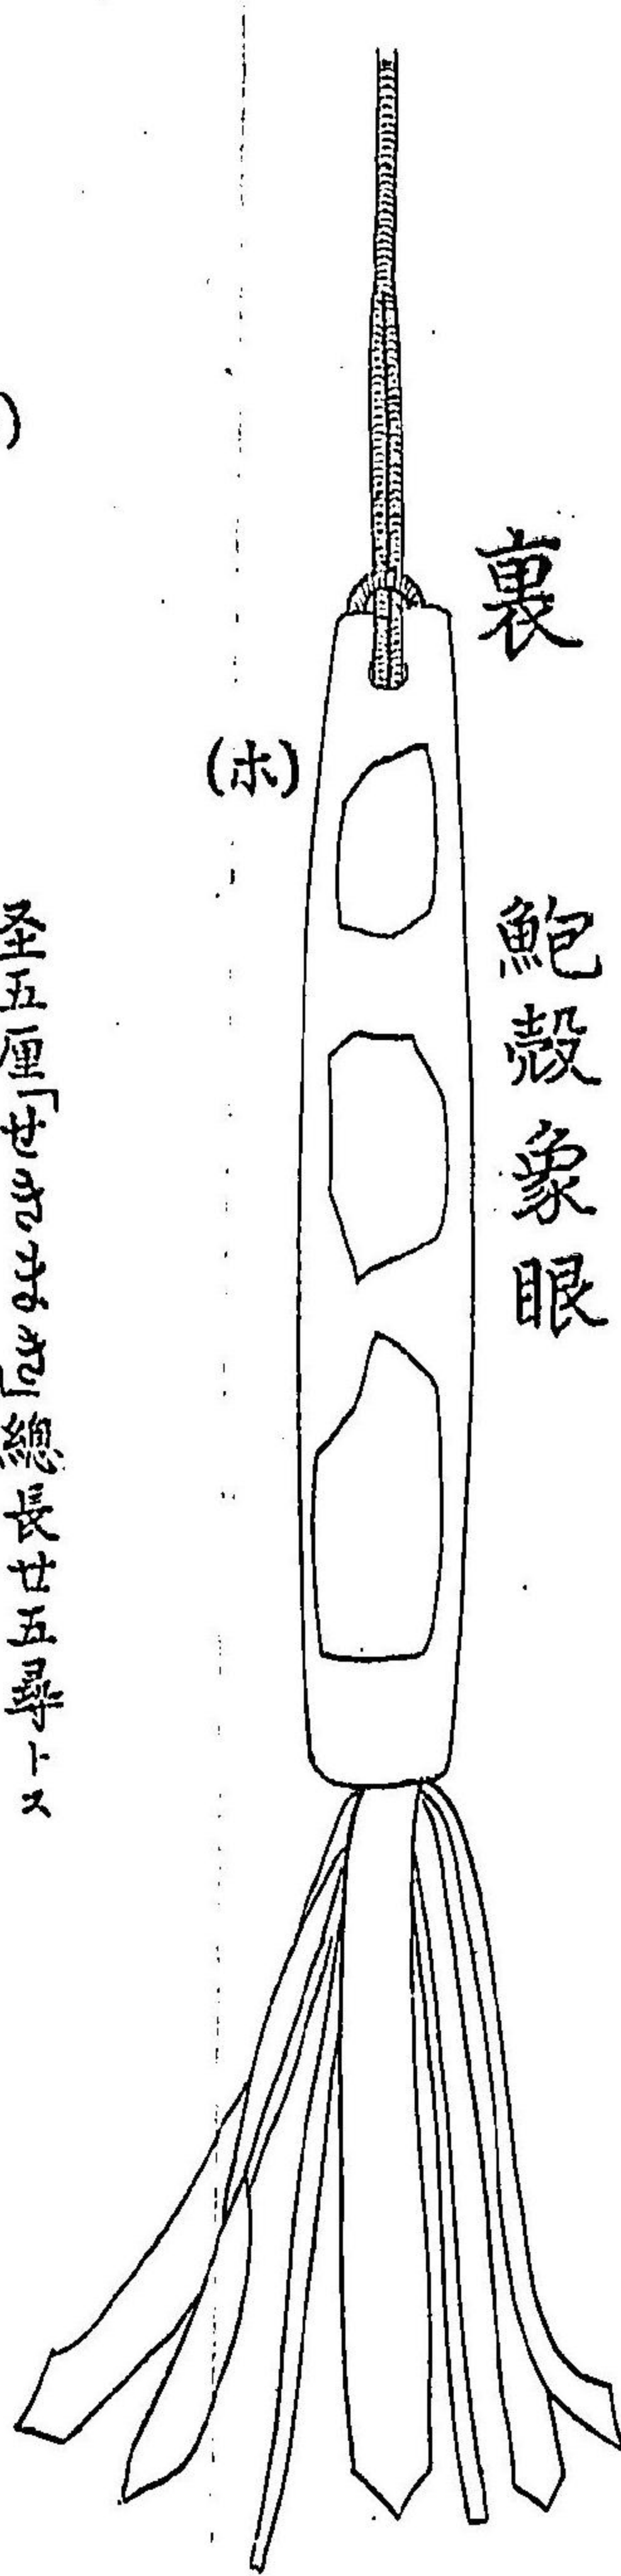 裏
鮑殻象眼
(ホ)
径五厘「せきやまき」總長廿五尋トス
)